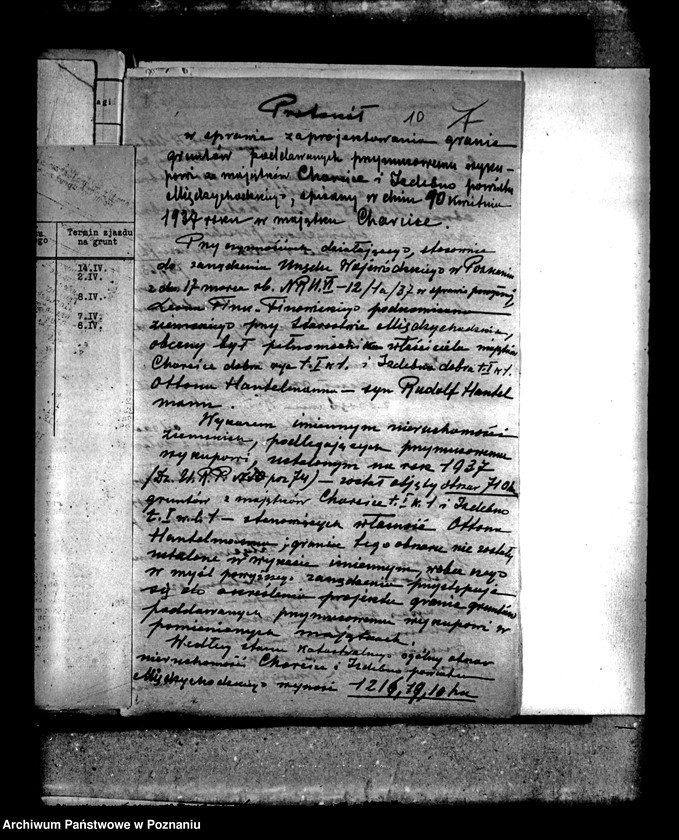 Protokół 10
w sprawie zaprojektowania granic
gruntów poddawanych przymusowemu wyku-
powi z majątków Charcice i Izdebno powiatu
Międzychodzkiego, spisany w dniu 20 kwietnia
1937 roku w majątku Charcice.
Przy czynnościach działającego, stosownie
do zarządzenia Urzędu Wojewódzkiego w Poznaniu
z dn. 17 marca rb. w sprawie powyższej
ziemskiego przy Starostwie Międzychodzkim,
obecny był pełnomocnik właściciela majątków
Charcice dobra ryc. t. I w. 1. i Izdebno dobra t. I w. 1.
Ottona Hantelmanna — syn Rudolf Hantel
mann.
Wykazem imiennym nieruchomości
ziemskich, podlegających przymusowemu
wykupowi, ustalonym na rok 1937
(Dz. U. R. P. poz. 74) — został objęty obszar 710 ha
gruntów z majątków Charcice t. I k. 1 i Izdebno
t. I w. l. 1 — stanowiących własność Ottona
Hantelmanna; granice tego obszaru nie zostały
ustalone w wykazie imiennym, wobec czego
w myśl powyższego zarządzenia przystępuje
się do określenia projektu granic gruntów
poddawanych przymusowemu wykupowi w
pomienionych majątkach.
Według stanu katastralnego ogólny obszar
nieruchomości Charcice i Izdebno powiatu
Międzychodzkiego wynosi 1216,79,10 ha
Termin zjazdu
na grunt
14.IV.
2.IV.
8.IV.
7.IV.
6.IV.
Archiwum Państwowe w Poznaniu